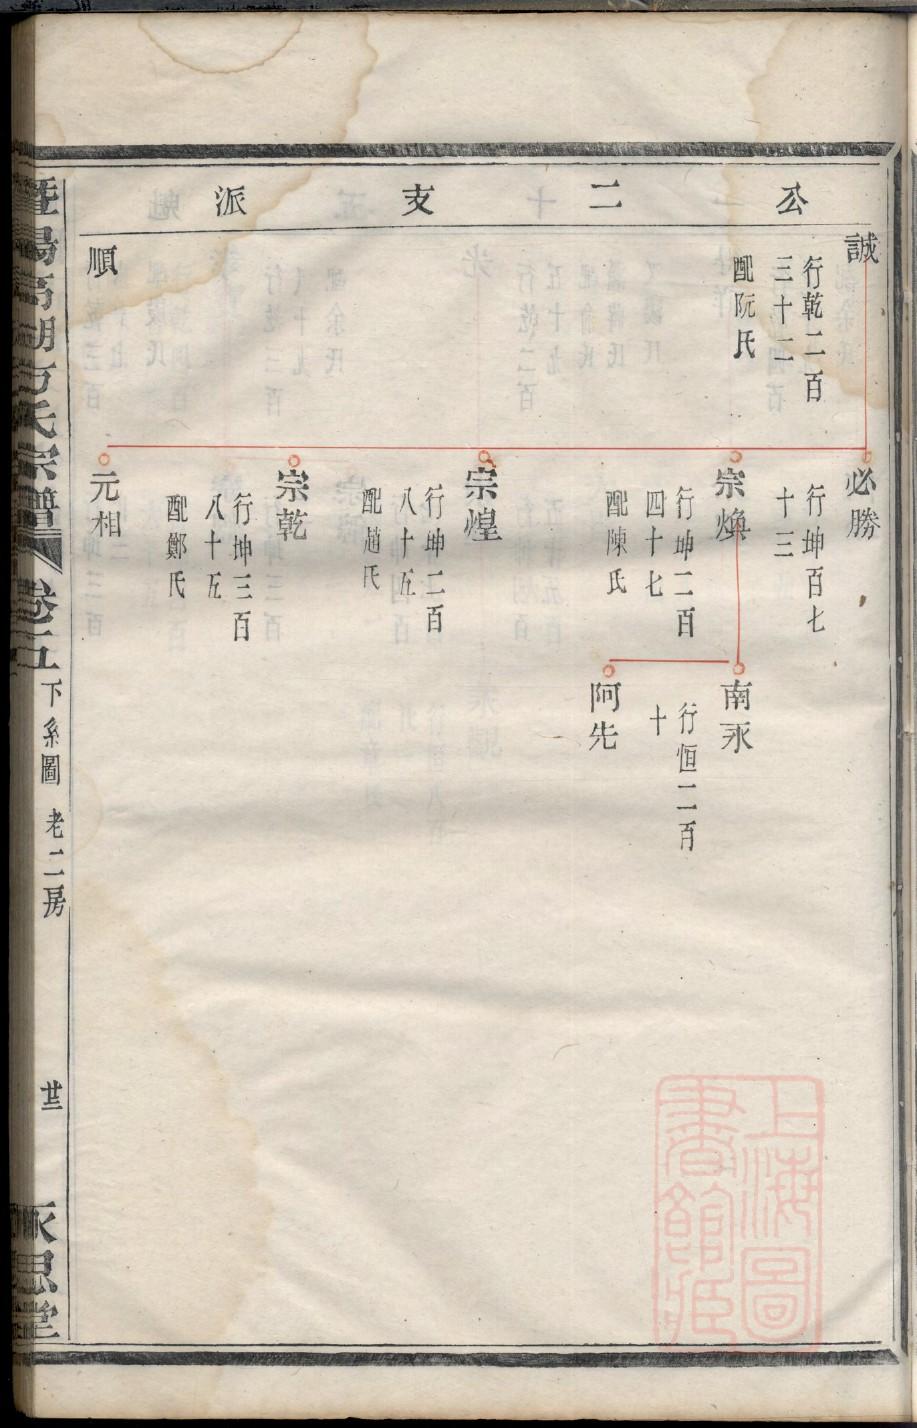 公二支派
誠
行乾二百
三十二
配阮氏
順
必勝
行坤百七
十三
宗煥
行坤二百
四十七
配陳氏
宗煌
行坤二百
八十五
配趙氏
宗乾
行坤三百
八十五
配鄭氏
元相
南永
行恒二百
十
阿先
暨陽高湖方氏宗譜
卷二
下系圖
老二房
廿三
永思堂
上海圖
書館藏